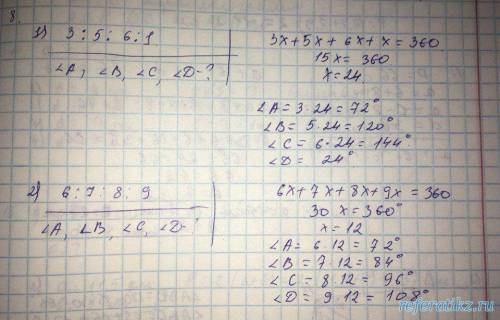 8.
1) 3 : 5 : 6 : 1
∠A, ∠B, ∠C, ∠D-?
3x+5x+6x+x=360
15x=360
x=24
∠A=3·24=72°
∠B=5·24=120°
∠C=6·24=144°
∠D= 24°
2) 6 : 7 : 8 : 9
∠A, ∠B, ∠C, ∠D-?
6x+7x+8x+9x=360
30x=360°
x=12
∠A=6·12=72°
∠B=7·12=84°
∠C=8·12=96°
∠D=9·12=108°
referatikz.ru